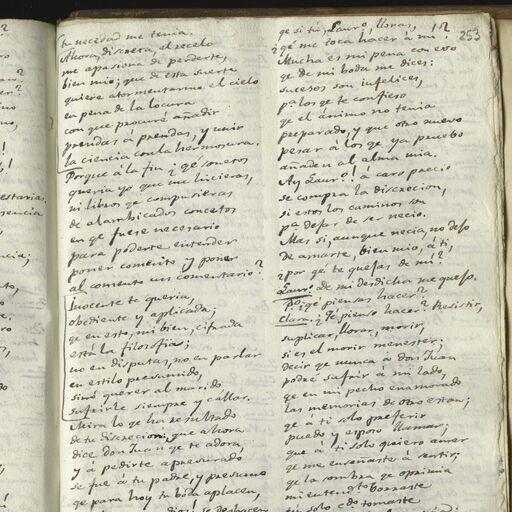 tu necedad me tenia.
Ahora, discreta, el recelo
me apasiona de perderte,
bien mio; que de esta suerte
quiere atormentarme el cielo
en pena de la locura
con que procuré añadir
prendas á prendas, y unir
la ciencia con la hermosura.
Porque á la fin ¿qe sonetos
queria yo que me hicieras,
ni libros qe compusieras
de alambicados concetos
en qe fuese necesario
para poderte entender
poner comento y poner
al comento un comentario?
Inocente te queria,
obediente y aplicada;
qe en esto, mi bien, cifrada
está la filosofia;
no en disputas, no en parlar
en estilo presumido,
sinó querer al marido
sufrirle siempre y callar.
Mira lo qe ha resultado
de tu discrecion, que ahora
dice don Juan qe te adora,
y á pedirte apresurado
se fue á tu padre, y presumo
qe para hoy tu boda aplacen,
253
qe si tú, Laurº, lloras,
¿qé me toca hacer á mi?
Mucha es mi pena con eso
qe de mi boda me dices;
sucesos son infelices,
pª los qe te confieso
qe el ánimo no tenia
preparado, y que otro nuevo
pesar á los qe ya pruebo
añaden al alma mia.
Ay Laurº! á caro precio
se compra la discrecion,
si estos los caminos son
pª dejar de ser necio.
Mas si, aunque necia, no dejo
de amarte, bien mio, á ti,
¿por qé te quejas de mi?
Laurº de mi desdicha me quejo.
Pº ¿qé piensas hacer?
Clara. ¿Qé pienso hacer? Resistir,
suplicar, llorar, morir,
si es el morir menester;
decir qe nunca á don Juan
podré sufrir á mi lado,
qe en mi pecho enamorado
las memorias de otro estan;
qe á ti solo preferir
puedo y esposo llamar;
que á ti solo quiero amar
qe me enseñaste á sentir;
qe la sombra qe oprimia
mi entendtº borraste